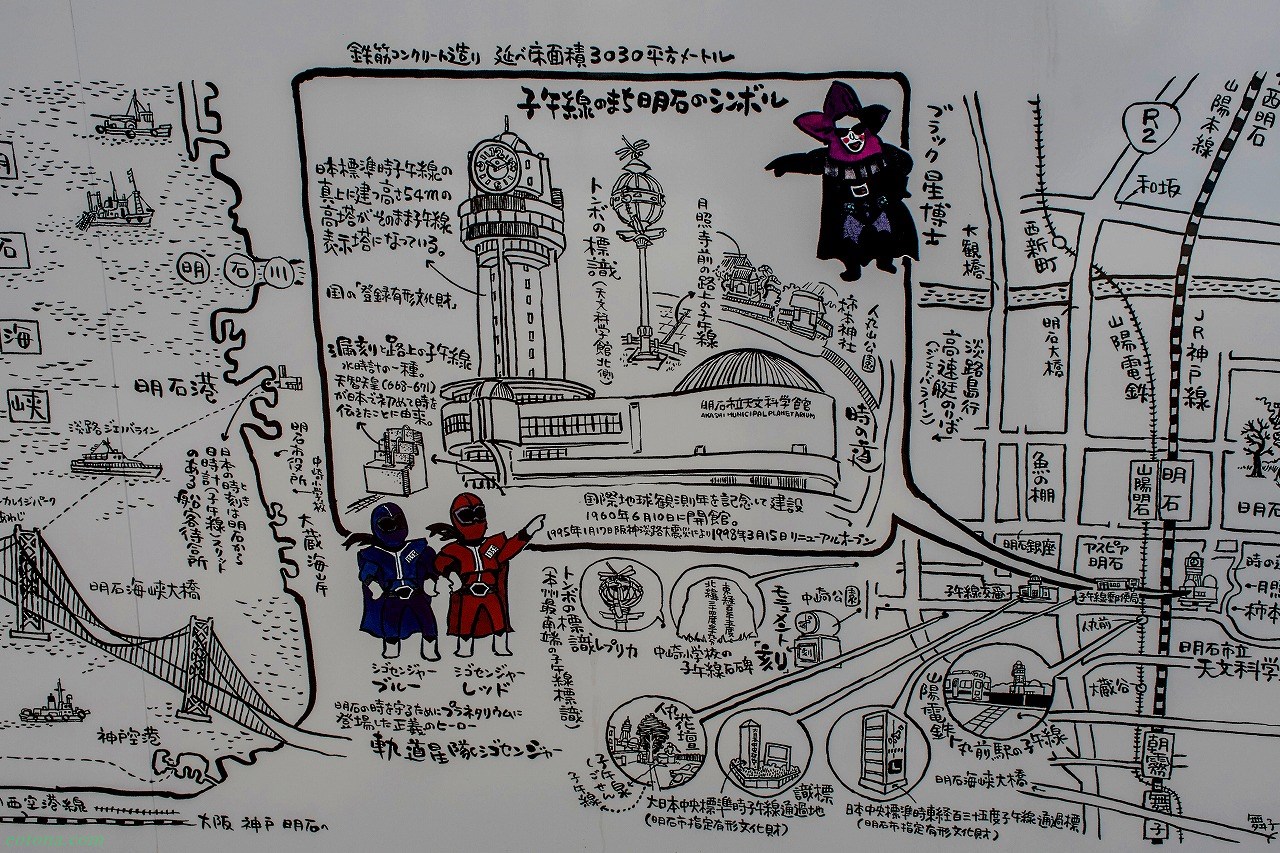 鉄筋コンクリート造り 延べ床面積3030平方メートル
子午線のまち明石のシンボル
日本標準時子午線の
真上に建つ高さ54mの
高塔がそのまま子午線
表示塔になっている。
国の「登録有形文化財」
漏刻と路上の子午線
水時計の一種。
天智天皇(668-671)
が日本で初めて時を
伝えたことに由来。
トンボの標識
(天文科学館北側)
月照寺前の路上の子午線
柿本神社
人丸山公園
時の道
明石市立天文科学館
AKASHI MUNICIPAL PLANETARIUM
国際地球観測年を記念して建設
1960年6月10日に開館。
1995年1月17日阪神淡路大震災により1998年3月15日リニューアルオープン
ブラック星博士
シゴセンジャー
ブルー
シゴセンジャー
レッド
明石の時を守るためにプラネタリウムに
登場した正義のヒーロー
軌道星隊シゴセンジャー
石
海
峡
明石川
明石港
淡路ジェノバライン
日本の時刻は明石から
日時計(子午線)スタンド
のある船客待合所
明石市役所
中崎小学校
大蔵海岸
明石海峡大橋
神戸空港
西空港線
大阪 神戸 明石の
トンボの標識レプリカ
(本州最南端の子午線標識)
中崎小学校の
子午線石碑
モニュメント「刻」
中崎公園
人丸花壇
大日本中央標準時子午線通過地
識標
(明石市指定有形文化財)
日本中央標準時東経百三十五度子午線通過標
(明石市指定有形文化財)
山陽電鉄
人丸前駅の子午線
明石海峡大橋
R2
和坂
山陽本線
西明石
大観橋
西新町
明石大橋
山陽電鉄
JR神戸線
淡路島行
高速艇のりば
(ジェノバライン)
魚の棚
山陽明石
明石
明石銀座
アスピア
明石
子午線交番
子午線郵便局
人丸前
明石市立
天文科学
大蔵谷
朝霧
舞子
舞子